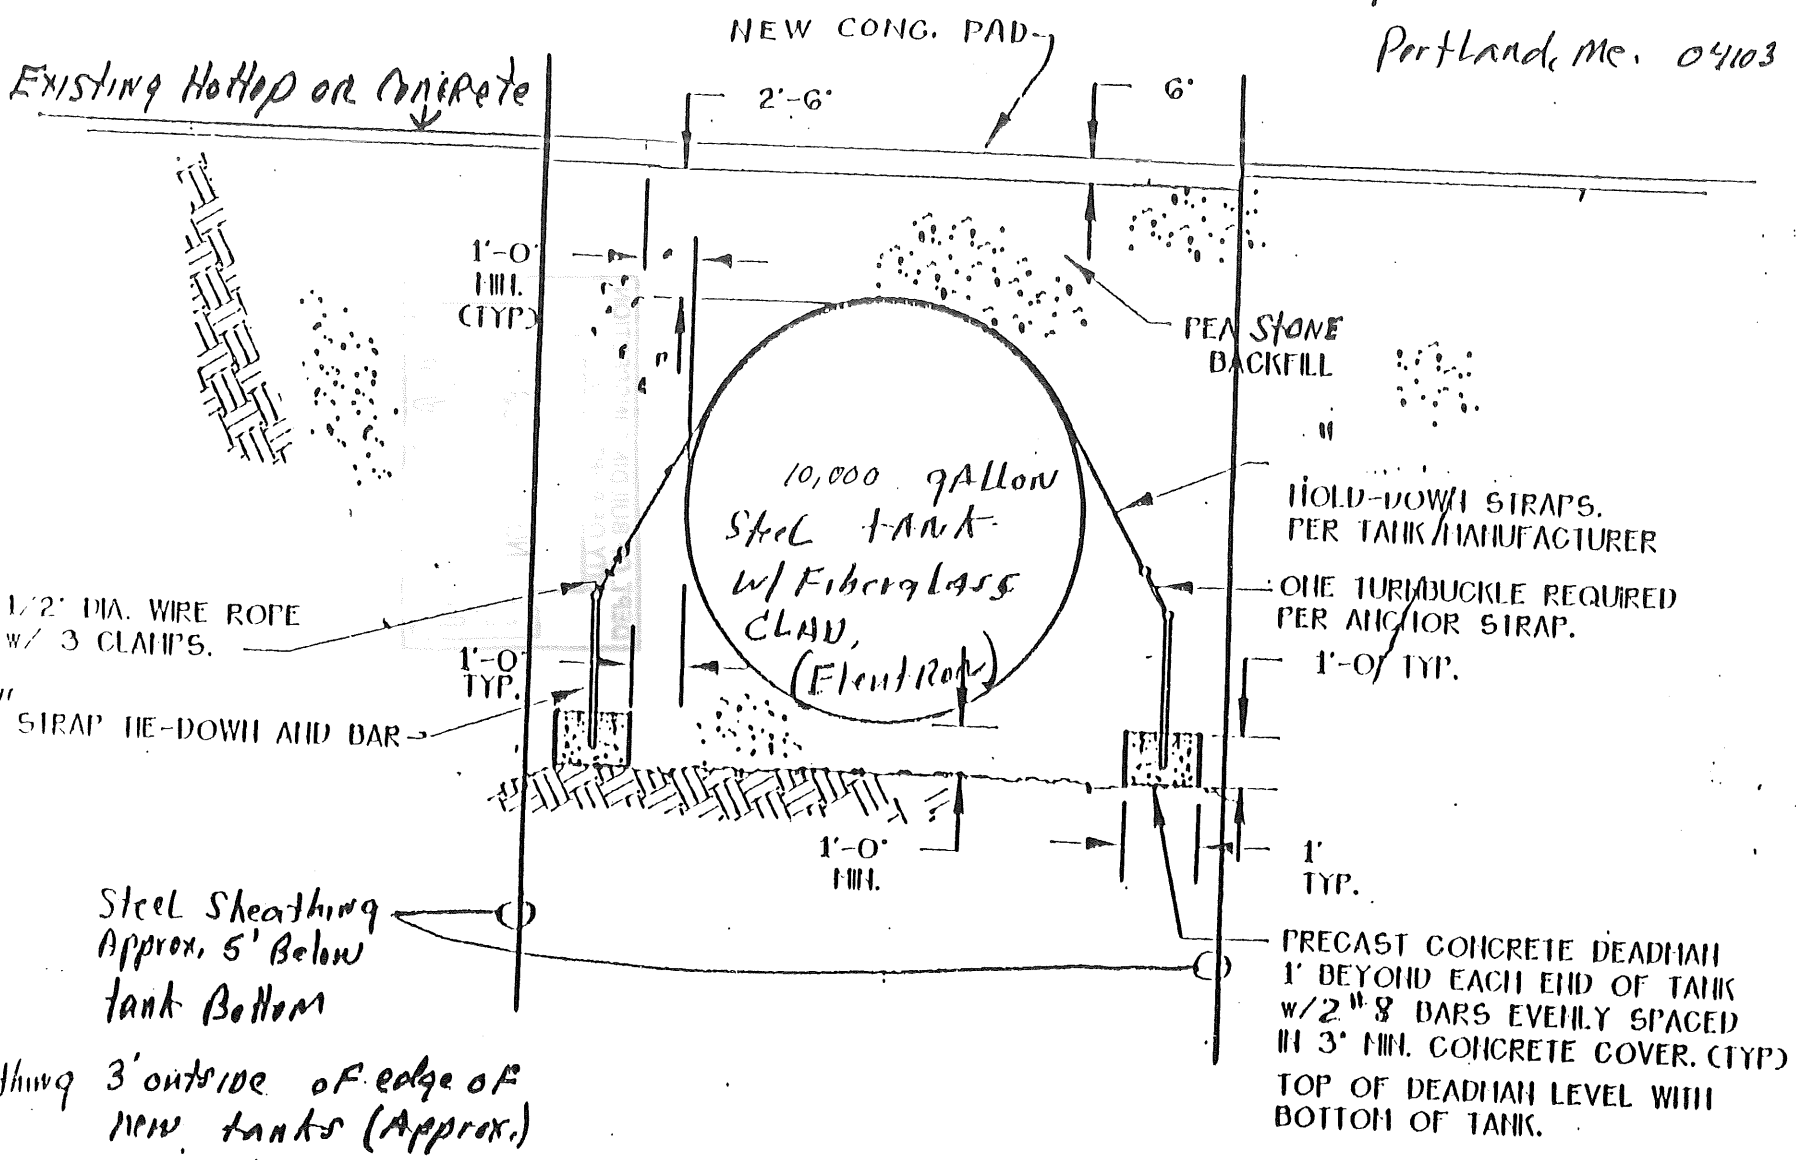 NEW CONC. PAD
Portland, Me. 04103
Existing Hottop or Concrete
2'-6"
6"
1'-0"
MIN.
(TYP)
PEA STONE
BACKFILL
10,000 gallon
Steel tank
w/ Fiberglass
CLAD,
HOLD-DOWN STRAPS.
PER TANK MANUFACTURER
1/2" DIA. WIRE ROPE
w/ 3 CLAMPS.
ONE TURNBUCKLE REQUIRED
PER ANCHOR STRAP.
1'-0
TYP.
1'-0" TYP.
STRAP TIE-DOWN AND BAR
1'-0"
MIN.
1'
TYP.
Steel Sheathing
Approx. 5' Below
tank Bottom
thing 3' outside of edge of
new tanks (Approx.)
PRECAST CONCRETE DEADMAN
1' BEYOND EACH END OF TANK
w/2 "8 BARS EVENLY SPACED
IN 3" MIN. CONCRETE COVER. (TYP)
TOP OF DEADMAN LEVEL WITH
BOTTOM OF TANK.